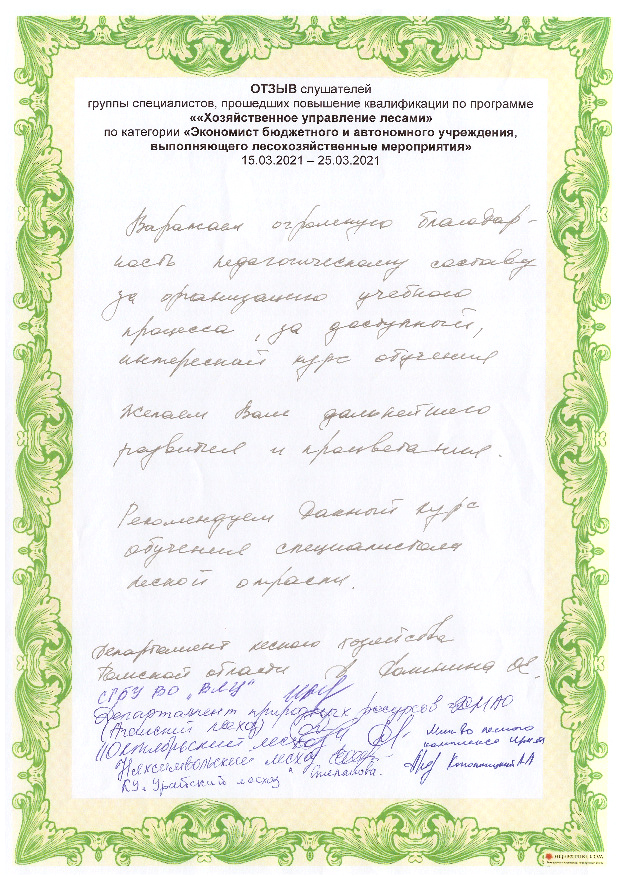 ОТЗЫВ слушателей
группы специалистов, прошедших повышение квалификации по программе
««Хозяйственное управление лесами»
по категории «Экономист бюджетного и автономного учреждения,
выполняющего лесохозяйственные мероприятия»
15.03.2021 – 25.03.2021
Выражаем огромную благодар-
ность педагогическому составу
за организацию учебного
процесса, за доступный,
интересный курс обучения
Желаем Вам дальнейшего
развития и процветания.
Рекомендуем данный курс
обучения специалистам
лесной отрасли.
Департамент лесного хозяйства
Томской области
СГБУ ВО "ВЛЦ"
Департамент природных ресурсов ХМАО
(Аганский лесхоз)
"Октябрьский лесхоз"
Мин-во лесного
комплекса
Няксимвольский лесхоз
КУ "Урайский лесхоз"